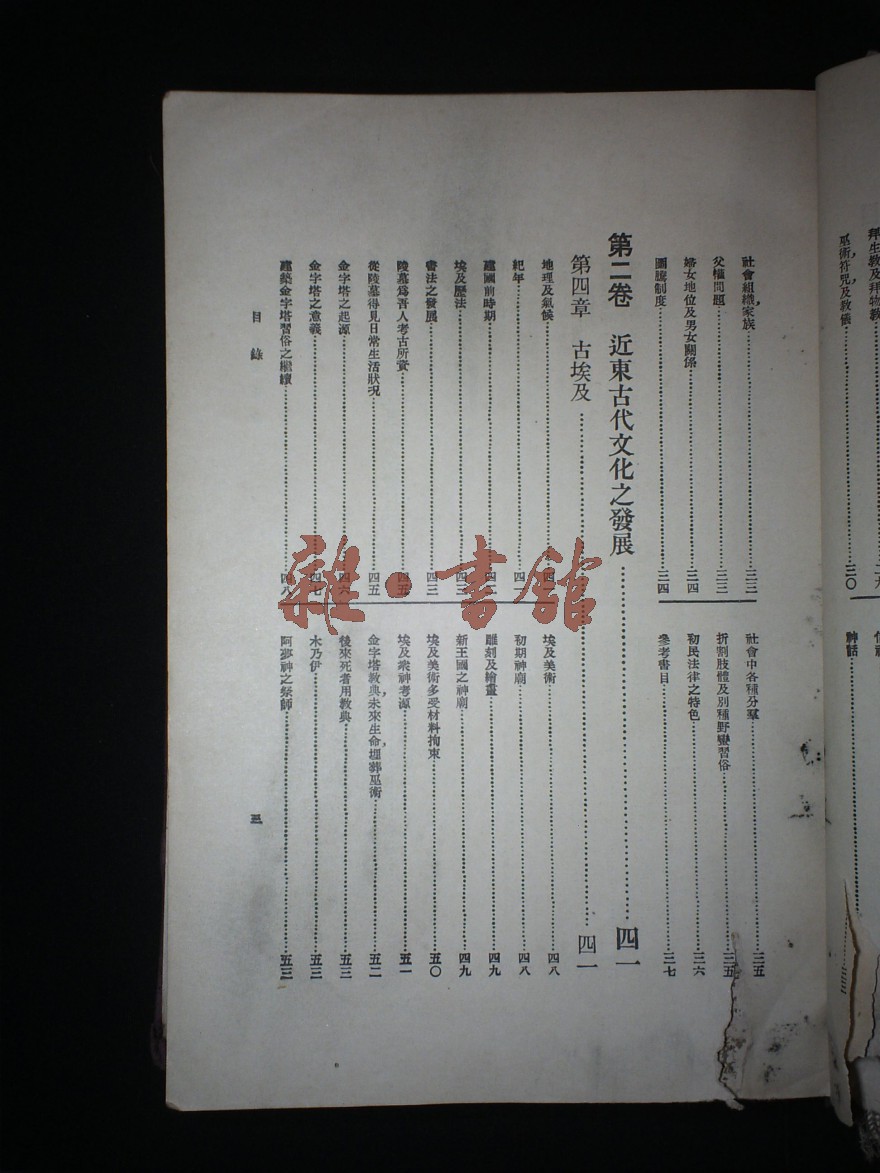 拜生教及拜物教
巫術,符咒,及教儀……三〇
神話
社會組織,家族……三三
父權問題……三三
婦女地位及男女關係……三四
圖騰制度……三四
社會中各種分羣……三五
折割肢體及別種野蠻習俗……三五
初民法律之特色……三六
參考書目……三七
第二卷 近東古代文化之發展……四一
第四章 古埃及……四一
地理及氣候……
紀年……
建國前時期……四二
埃及歷法……四三
書法之發展……四三
陵墓爲吾人考古所資……
從陵墓得見日常生活狀況……四五
金字塔之起源……四六
金字塔之意義……四七
建築金字塔習俗之繼續……四八
埃及美術……四八
初期神廟……四八
雕刻及繪畫……四九
新王國之神廟……四九
埃及美術多受材料拘束……五〇
埃及衆神考源……五一
金字塔教典,未來生命,埋葬巫術……五二
後來死者用教典……五三
木乃伊……五三
阿夢神之祭師……五三
目錄
三
雜·書館